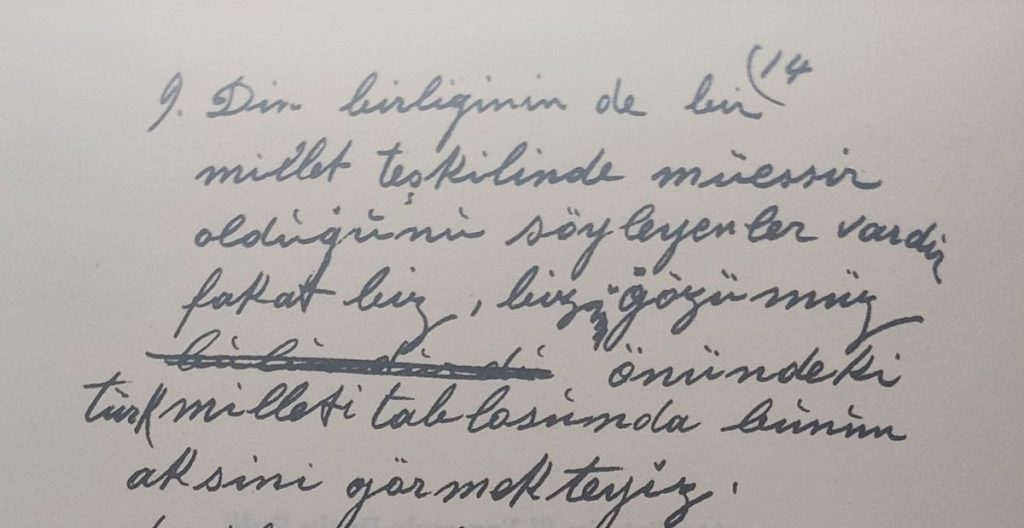 9. Din birliginin de bir (14
millet teşkilinde müessir
olduğunu söyleyenler vardır
fakat biz, biz gözümüz
önündeki
türk milleti tablosunda bunun
aksini görmekteyiz.